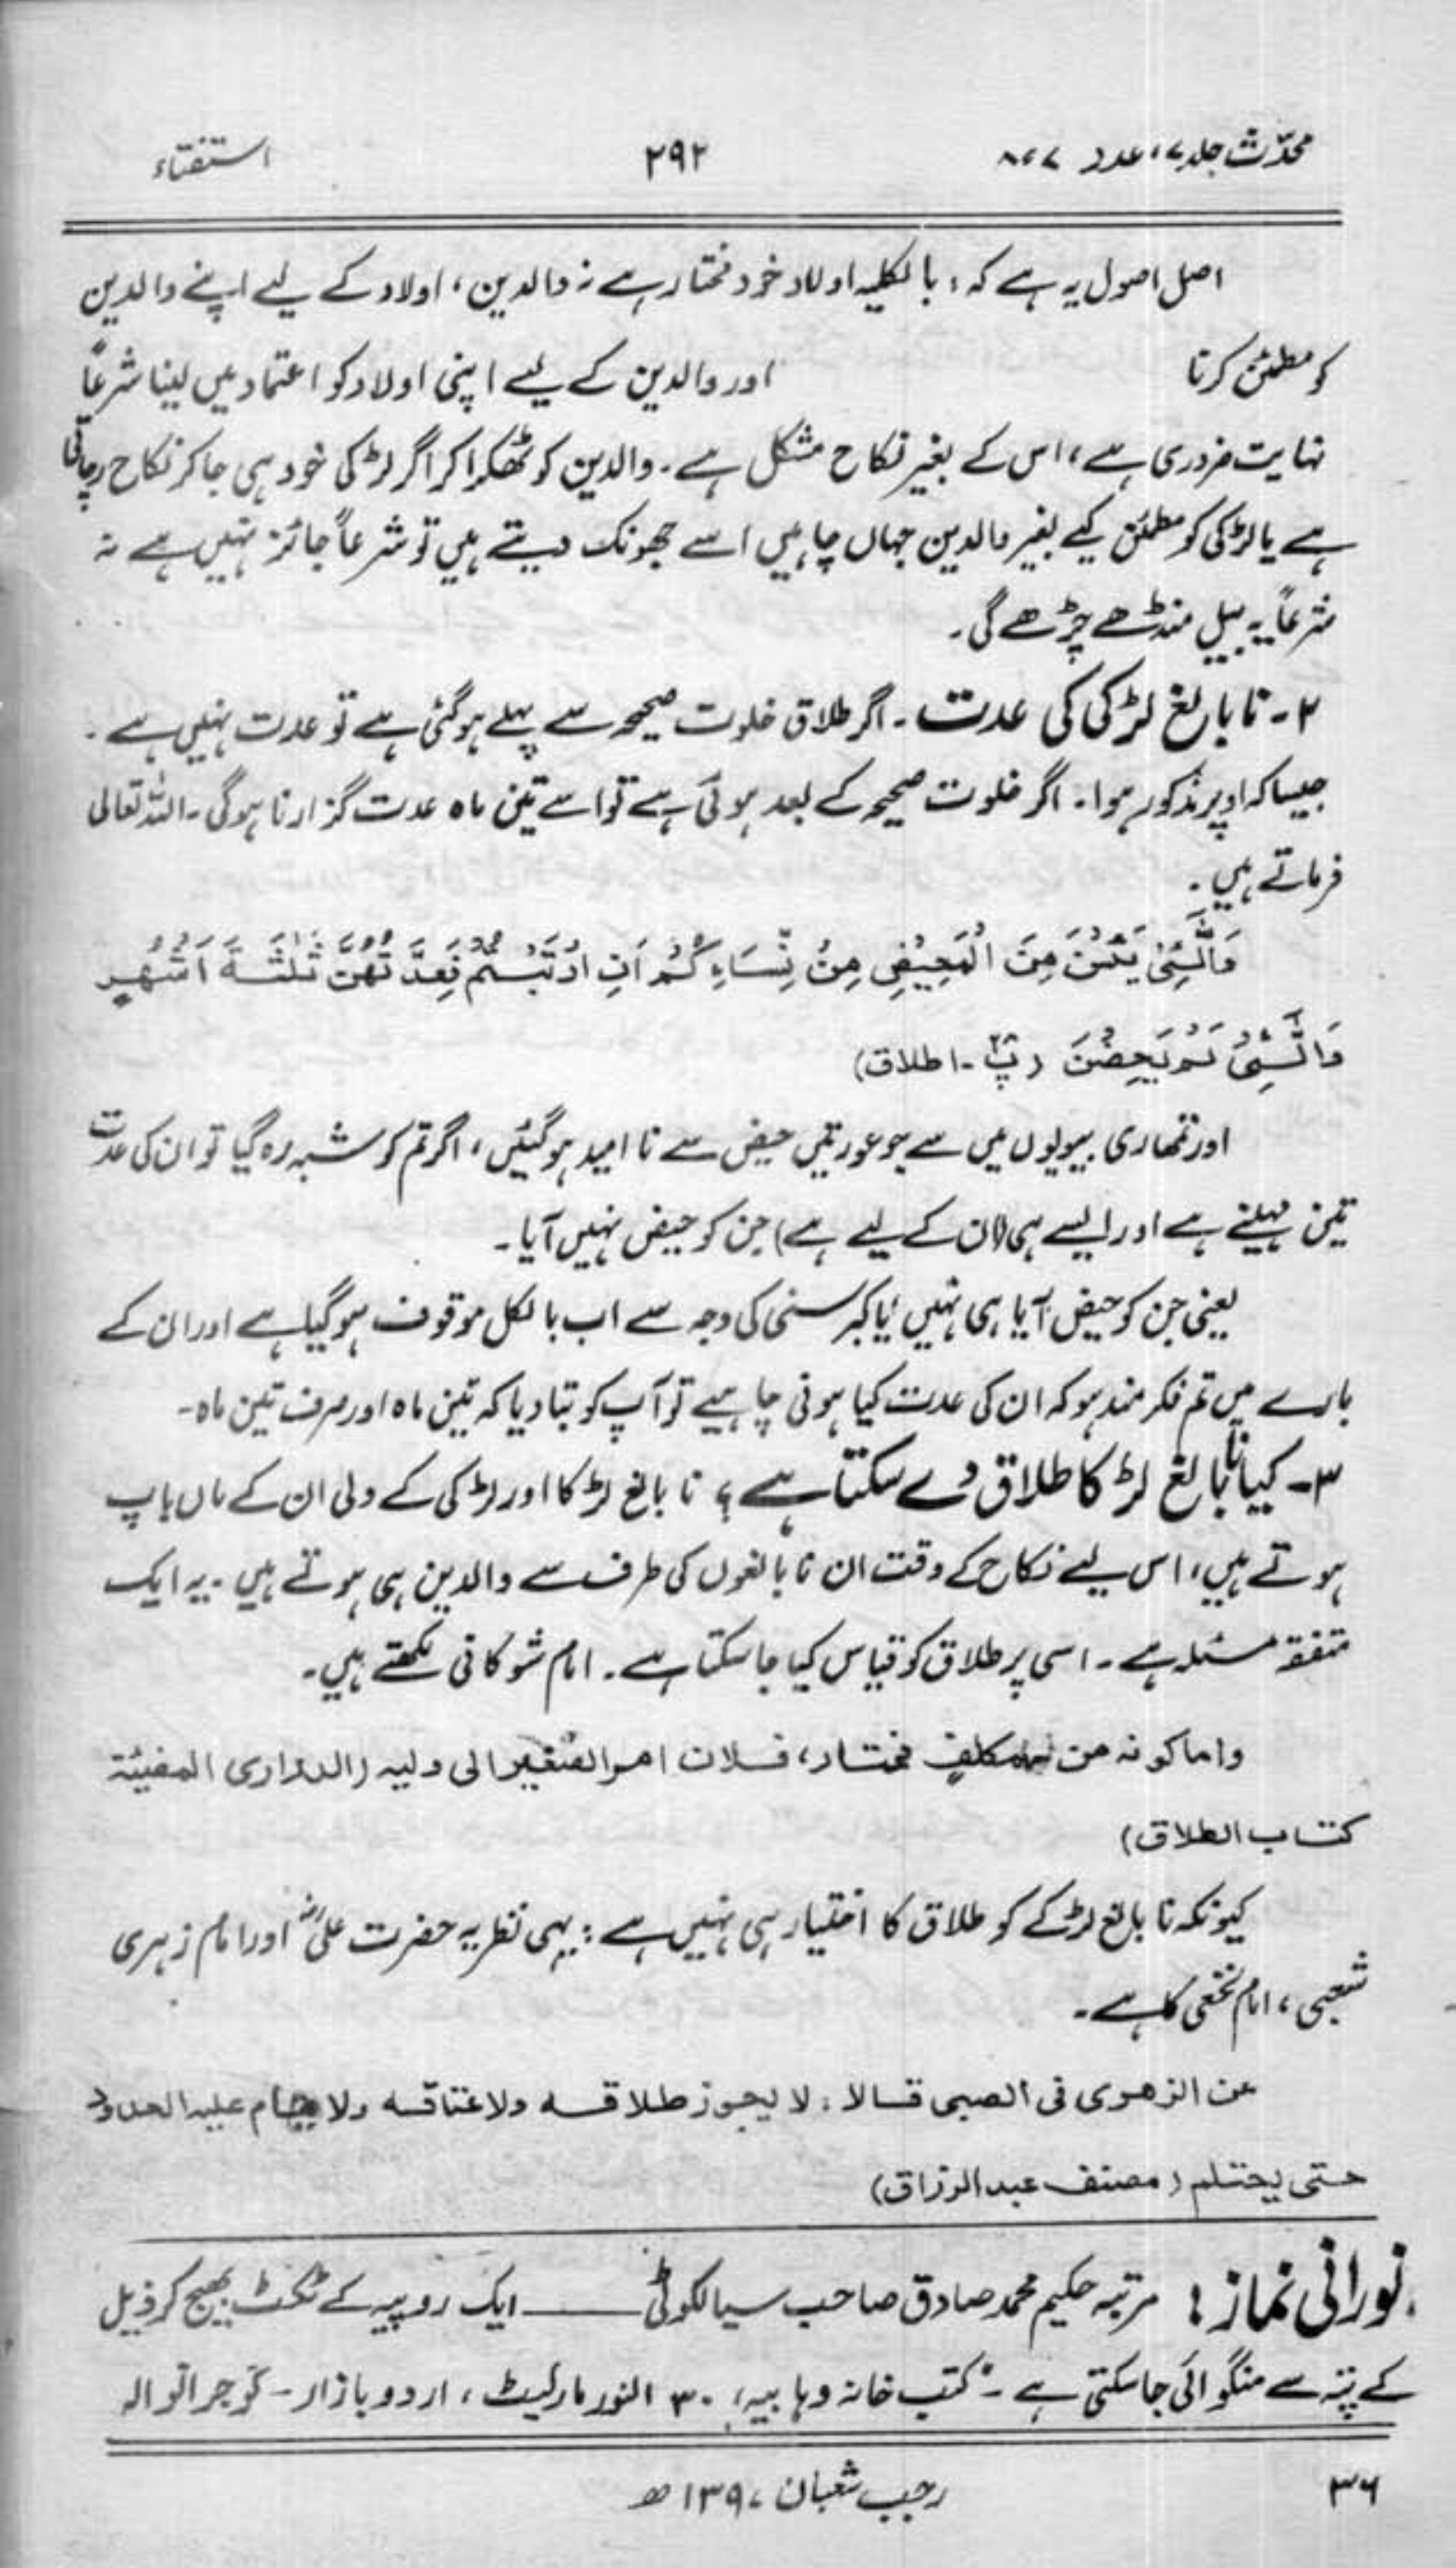 محدّث جلد ۷، عدد ۷، ۸
۲۹۲
استفتاء
اصل اصول یہ ہے کہ: بالکلیہ اولاد خود مختار ہے نہ والدین، اولاد کے لیے اپنے والدین
کو مطمئن کرنا اور والدین کے لیے اپنی اولاد کو اعتماد میں لینا شرعاً
نہایت ضروری ہے، اس کے بغیر نکاح مشکل ہے۔ والدین کو ٹھکرا کر اگر لڑکی خود ہی جا کر نکاح رچاتی
ہے یا لڑکی کو مطمئن کیے بغیر والدین جہاں چاہیں اسے جھونک دیتے ہیں تو شرعاً جائز نہیں ہے نہ
شرعاً یہ بیل منڈھے چڑھے گی۔
۲۔ نابالغ لڑکی کی عدت۔ اگر طلاق خلوت صحیحہ سے پہلے ہو گئی ہے تو عدت نہیں ہے۔
جیسا کہ اوپر مذکور ہوا۔ اگر خلوت صحیحہ کے بعد ہوئی ہے تو اسے تین ماہ عدت گزارنا ہوگی۔ اللہ تعالیٰ
فرماتے ہیں۔
وَالّٰٓـئِیْ یَئِسْنَ مِنَ الْمَحِیْضِ مِنْ نِّسَآءِکُمْ اِنِ ارْتَبْتُمْ فَعِدَّتُهُنَّ ثَلٰثَةُ اَشْهُرٍ
وَالّٰٓـئِیْ لَمْ یَحِضْنَ (پ۲۸۔ اطلاق)
اور تمھاری بیویوں میں سے جو عورتیں حیض سے نا امید ہو گئیں، اگر تم کو شبہ رہ گیا تو ان کی عدت
تین مہینے ہے اور ایسے ہی (ان کے لیے ہے) جن کو حیض نہیں آیا۔
یعنی جن کو حیض آیا ہی نہیں یا کبر سنی کی وجہ سے اب بالکل موقوف ہو گیا ہے اور ان کے
بارے میں تم فکر مند ہو کہ ان کی عدت کیا ہونی چاہیے تو آپ کو بتا دیا کہ تین ماہ اور صرف تین ماہ۔
۳۔ کیا نابالغ لڑکا طلاق دے سکتا ہے؟ نابالغ لڑکا اور لڑکی کے ولی ان کے ماں باپ
ہوتے ہیں، اس لیے نکاح کے وقت ان نابالغوں کی طرف سے والدین ہی ہوتے ہیں۔ یہ ایک
متفقہ مسئلہ ہے۔ اسی پر طلاق کو قیاس کیا جا سکتا ہے۔ امام شوکانی لکھتے ہیں۔
واما کونه من مکلفٍ مختار، فلان امر الصغیر الی ولیه (الدراری المضیئة
کتاب الطلاق)
کیونکہ نابالغ لڑکے کو طلاق کا اختیار ہی نہیں ہے: یہی نظریہ حضرت علیؓ اور امام زہری
شعبی، امام نخعی کا ہے۔
عن الزهری فی الصبی قالا: لا یجوز طلاقه ولا عتاقه ولا یقام علیه الحدود
حتی یحتلم (مصنف عبد الرزاق)
نورانی نماز: مرتبہ حکیم محمد صادق صاحب سیالکوٹی ــــ ایک روپیہ کے ٹکٹ بھیج کر ذیل
کے پتہ سے منگوائی جا سکتی ہے۔ کتب خانہ وہابیہ، ۳۰ النور مارکیٹ، اردو بازار۔ گوجرانوالہ
۳۶
رجب شعبان ۱۳۹۷ھ